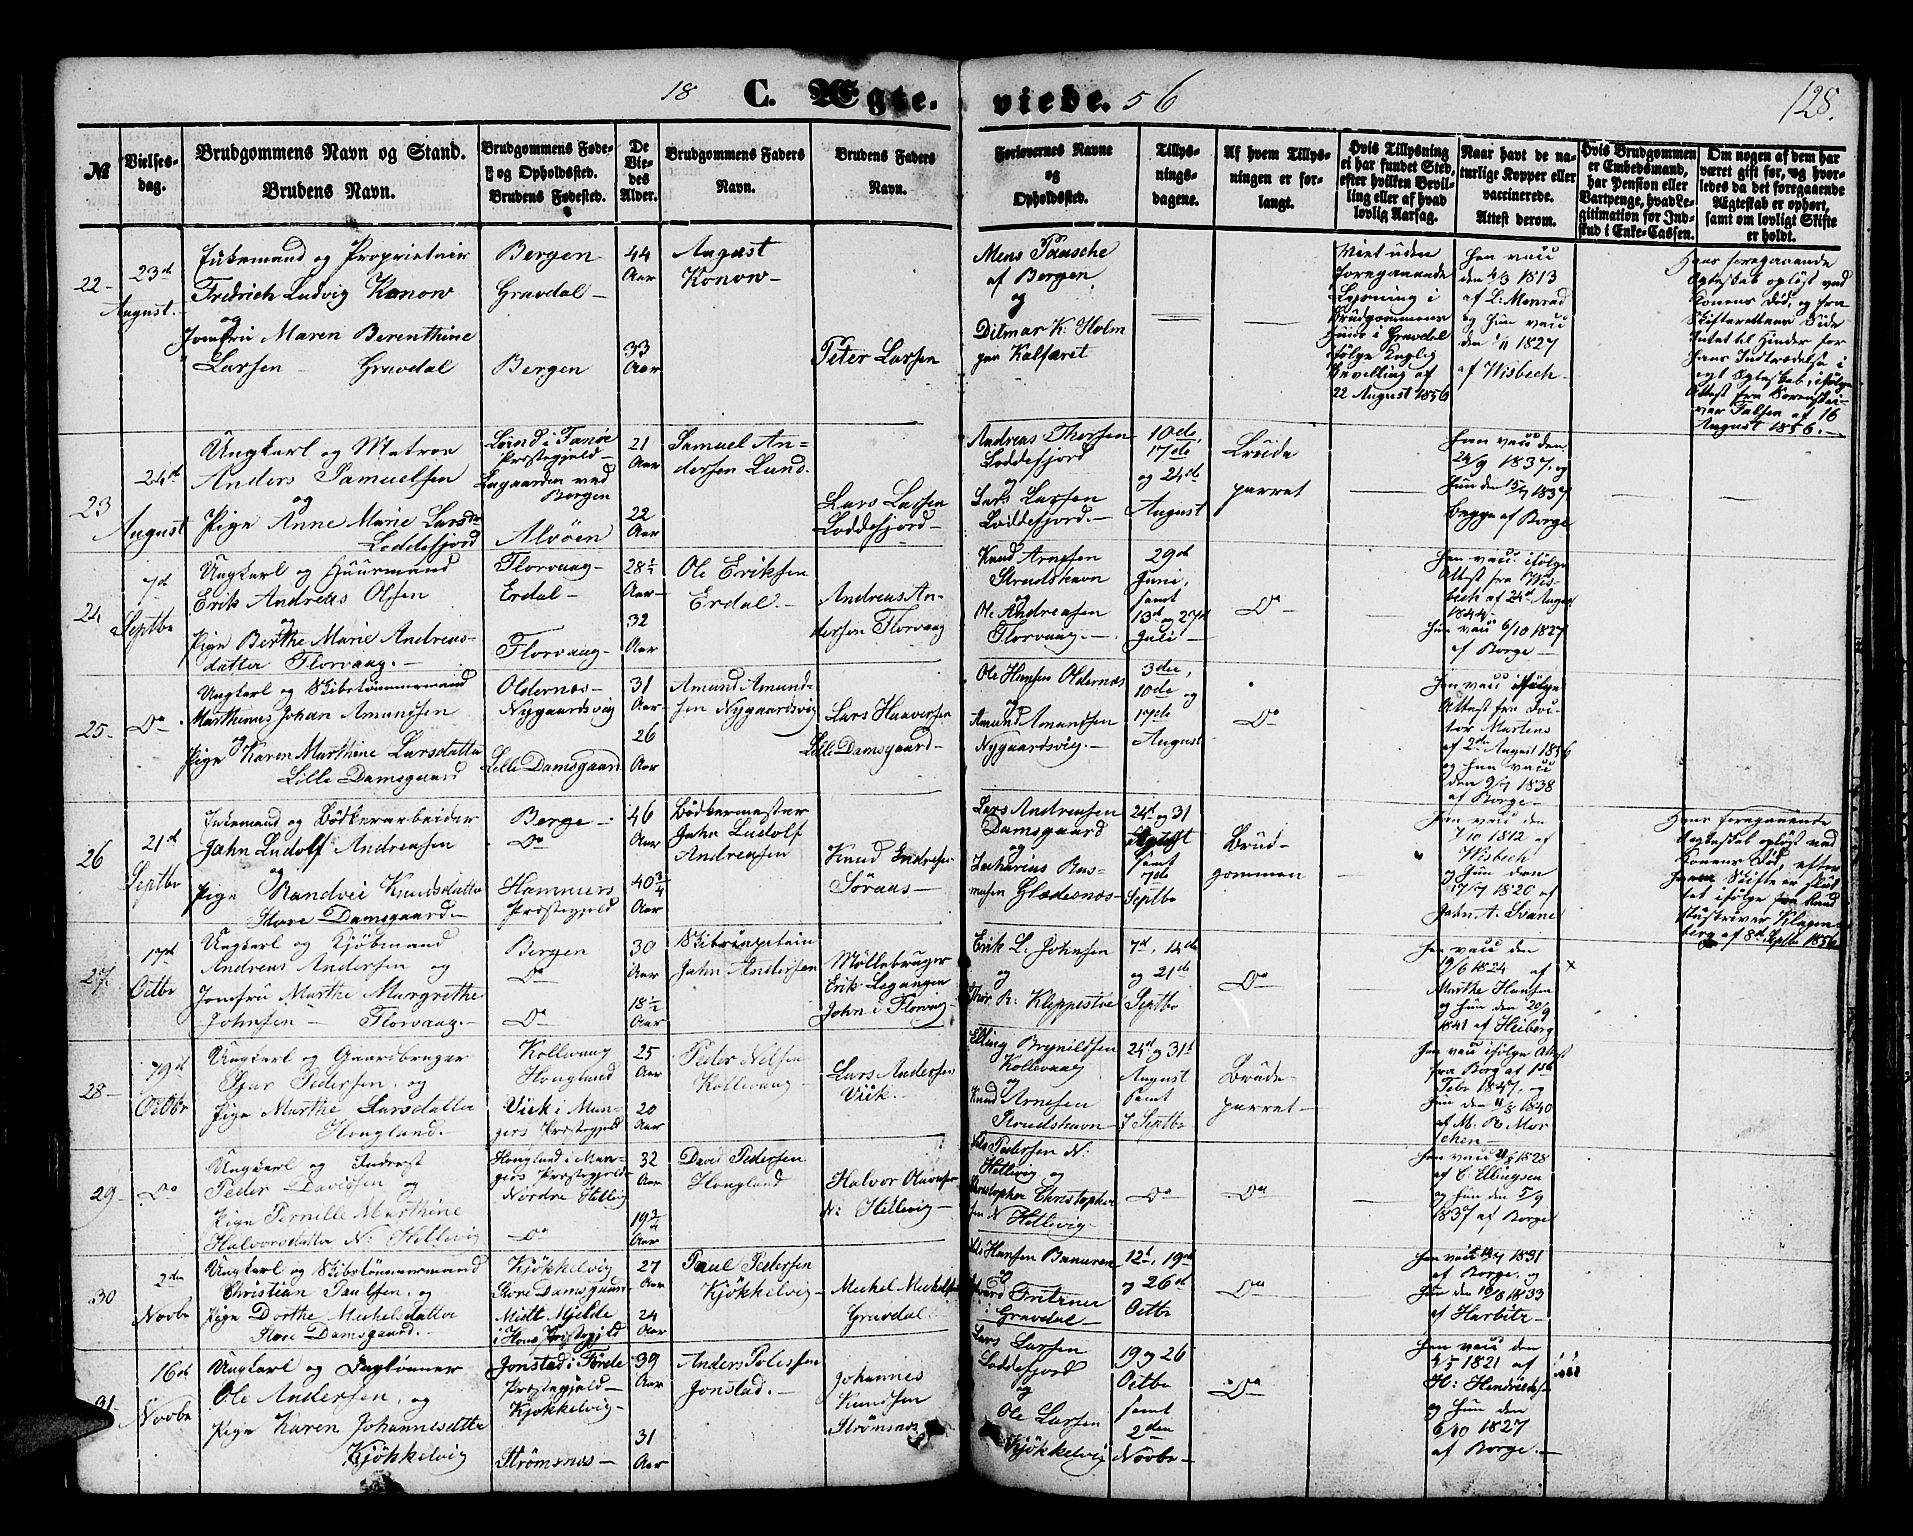 18 C. Ægte. viede. 56
128.
№
Vielses-
dag.
Brudgommens Navn og Stand.
Brudens Navn.
Brudgommens Føde-
og Opholdssted.
Brudens Fødested.
De
Vie-
des
Alder.
Brudgommens Faders
Navn.
Brudens Faders
Navn.
Forlovernes Navne
og
Opholdssted.
Tillys-
nings-
dagene.
Af hvem Tillys-
ningen er for-
langt.
Hvis Tillysning
ei har fundet Sted,
efter hvilken Bevil-
ling eller af hvad
lovlig Aarsag.
Naar havt de na-
turlige Kopper eller
vaccinerede.
Attest derom.
Hvis Brudgommen
er Embedsmand,
har Pension eller
Vartpenge, hvad Le-
gitimation for Ind-
skud i Enke-Cassen.
Om nogen af dem har
været gift før, og hvor-
ledes da det foregaaende
Ægteskab er ophørt,
samt om lovligt Skifte
er holdt.
22-
23d
August.
Enkemand og Proprietair
Fredrich Ludvig Konow
og
Jomfru Maren Berenthine
Larsen - Gravdal
Bergen
Gravdal -
Bergen
44
Aar
33
Aar
August
Konow-
Peter Larsen
Mens Pausche
af Bergen
og
Ditmar K: Holm
gen Kalfaret
Viet uden
foregaaende
Lysning i
Brudgommens
Huus i Gravdal
ifølge Kongelig
Bevilling af
22 August 1856
Han vacc
den 4/3 1813
af L: Monrad
og hun vacc
den 1827
af Wisbech-
Hans foregaaende
Egteskab opløst ved
Konens Død, og fra
Skifterettens Side
Intet til Hinder for
hans Indtrædelse i
nyt Egteskab, ifølge
Attest fra Sorenskri-
ver Falsen af 16
August 1856.-
23
24d
August
Ungkarl og Matros
Anders Samuelsen
og
Pige Anne Marie Larsdr
Loddefjord
Lund i Fanøe
Præstegjeld-
Laxaarden ved
Bergen
Alvøen
21
Aar
22
Aar
Samuel An-
dersen Lund.
Lars Larsen
Loddefjord-
Andreas Thorsen
Loddefjord
og
Lars Larsen
Loddefjord.-
10de,
17de
og 24d
August
Brude
parret
Han vacc den
24/9 1837, og
Hun den 15/9 1837
begge af Borge
24
7d
Septbr
Ungkarl og Huusmand
Erik Andreas Olsen
og
Pige Berthe Marie Andreas-
datter Florvaag.-
Florvaag-
Erdal-
Florvaag-
28½
Aar-
32
Aar
Ole Eriksen
Erdal.-
Andreas An-
dersen Florvaag
Knud Arnesen
Strudshavn
og
Ole Andreasen
Florvaag.-
29d
Juni,
samt
13d og 27d
Juli-
Do-
Han vacc. ifølge
Attest fra Wis-
bech af 24d August
1844.
Hun vacc 6/10 1827
af Borge-
25-
Do-
Ungkarl og Skibstømmermand
Marthinus Johan Amundsen
og
Pige Karen Marthine Larsdatter
Lille Damsgaard
Oldernæs-
Nygaardsvig
Lille Damsgaard
31
Aar-
26
Aar
Amund Amund-
sen Nygaardsvig
Lars Haaversen
Lille Damsgaard-
Ole Hansen Oldernæs
og
Amund Amundsen
Nygaardsvig.-
3die,
10de og
17de
August
Do-
Han vacc ifølge
Attest fra Doc-
tor Martens
af 2d August 1856
og hun vacc
den 9/7 1838
af Borge-
26
21d
Septbr
Enkemand og Bødkerarbeider
Jahn Ludolf Andreasen
og
Pige Randvei Knudsdatter
Store Damsgaard.-
Berge-
Do-
Hammers
Præstegjeld
46
Aar
40¾
Aar
Bødkermester
Jahn Ludolf
Andreasen
Knud Endresen
Søraas-
Lars Andreasen
Damsgaard
og
Zacharius Ras-
musen Gladesnæs-
24d og 31
August
samt
7de
Septbr
Brud-
gommen
Han vacc den
7/10 1812 af
Wisbech
og Hun den
17/7 1820 af
Jahn A. Svane
Hans foregaaende
Egteskab opløst ved
Konens Død, efter
hvem Skifte er slut
tet ifølge fra Land
Klagen-
berg af 8d Septbr 1856
27-
17d
Octbr
Ungkarl og Kjøbmand
Andreas Andersen og
Jomfru Marthe Margrethe
Johnsen - Florvaag.-
Bergen
Do-
Do-
30
Aar
18½
Aar
Skibscapitain
Jahn Andersen
Møllebruger
Erik Legangen
John i Florvag-
Erik L. Johnsen
og
Thor R: Kleppestøe
7d, 14de
og 21de
Septbr
Do-
Han vacc den
19/6 1824 af
Marthe Hansen
og Hun den 20/9
1841 af Heiberg
x
28-
19d
Octbr
Ungkarl og Gaardbruger
Sjur Pedersen, og
Pige Marthe Larsdatter
Hougland.-
Kollevaag
Hougland
Viik i Man-
gers Præstegjeld
25
Aar
20
Aar
Peder Nilsen
Kollevaag
Lars Andersen
Viik.
Elling Brynildsen
Kollevaag
og
Knud Arnesen
Strudshavn-
24d og 31d
August
samt
7 Septbr
Brude-
parret-
Han vacc ifølge Attest
fra Borg af 156
Febr 1847, og
Hun den 11/8 1840
af M. R. Mor
schen-
29-
Do
Ungkarl og Inderst
Peder Davidsen og
Pige Pernille Marthine
Halvorsdatter N: Hillevig
Hougland i Man-
gers Præstegjeld
Nordre Hillevig
Do-
32
Aar
19¾
Aar
David Pedersen
Hougland
Halvor Olavesen
N: Hillevig-
Nils Pedersen N:
Hillevig og
Christopher Christopher
sen N Hillevig-
Do-
Do-
Han vacc 1828
af C. Ellingsen
og Hun den 5/9
1837 af Borge
30
2den
Novbr
Ungkarl og Skibstømmermand
Christian Paulsen, og
Pige Dorthe Michelsdatter
Store Damsgaard.-
Kjøkkelvig
Store Damsgaard
Midt Mjelde
i Hous Præstegjeld
27
Aar
24
Aar
Paul Pedersen
Kjøkkelvig
Michel Michelsen
Gravdal.
Nils Hansen Banuren
og
Fritzner
i
Gravdal-
12d, 19de
og 26d
Octbr
Do
Han vacc 1831
af Borge, og
Hun den 10/8 1833
af Harbitz-
31-
16d
Novbr
Ungkarl og Dagtønner
Ole Andersen, og
Pige Karen Johannesdatter
Kjøkkelvig
Jonstad i Førde
Præstegjeld-
Kjøkkelvig-
Strømsnæs-
39
Aar
31
Aar
Anders Polessen
Jonstad.-
Johannes
Knudsen
Strømsnæs
Lars Larsen
Loddefjord
og
Ole Larsen
Kjøkkelvig
19 og 26
Octbr
samt
2den
Novbr-
Do-
Han vacc den
4/5 1821 af
H: Hendriksen
og Hun den
6/10 1827
af Borge.-